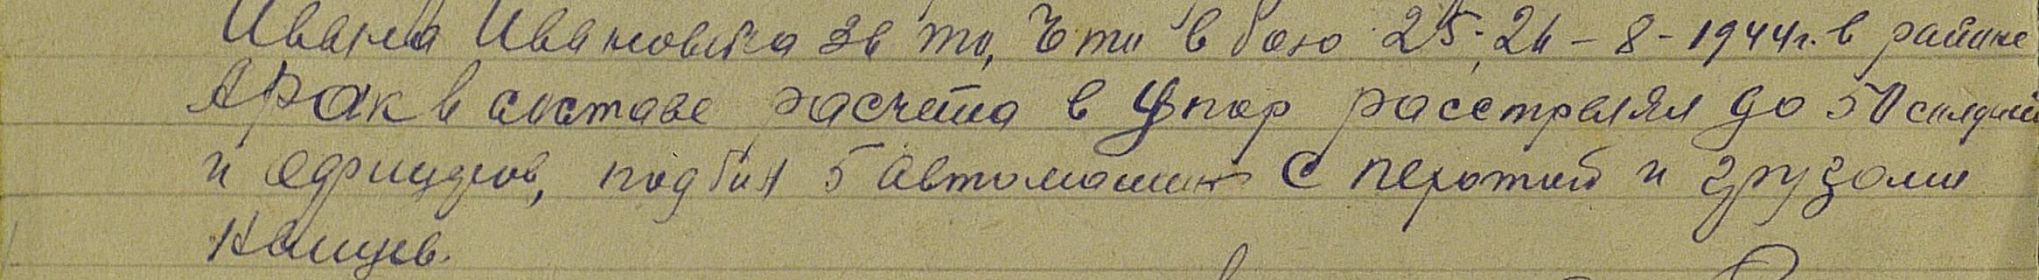 Ивана Ивановича за то, что в бою 25-26-8-1944г. в районе
Арак в составе расчета в упор расстрелял до 50 солдат
и офицеров, подбил 5 автомашин с пехотой и грузом
немцев.